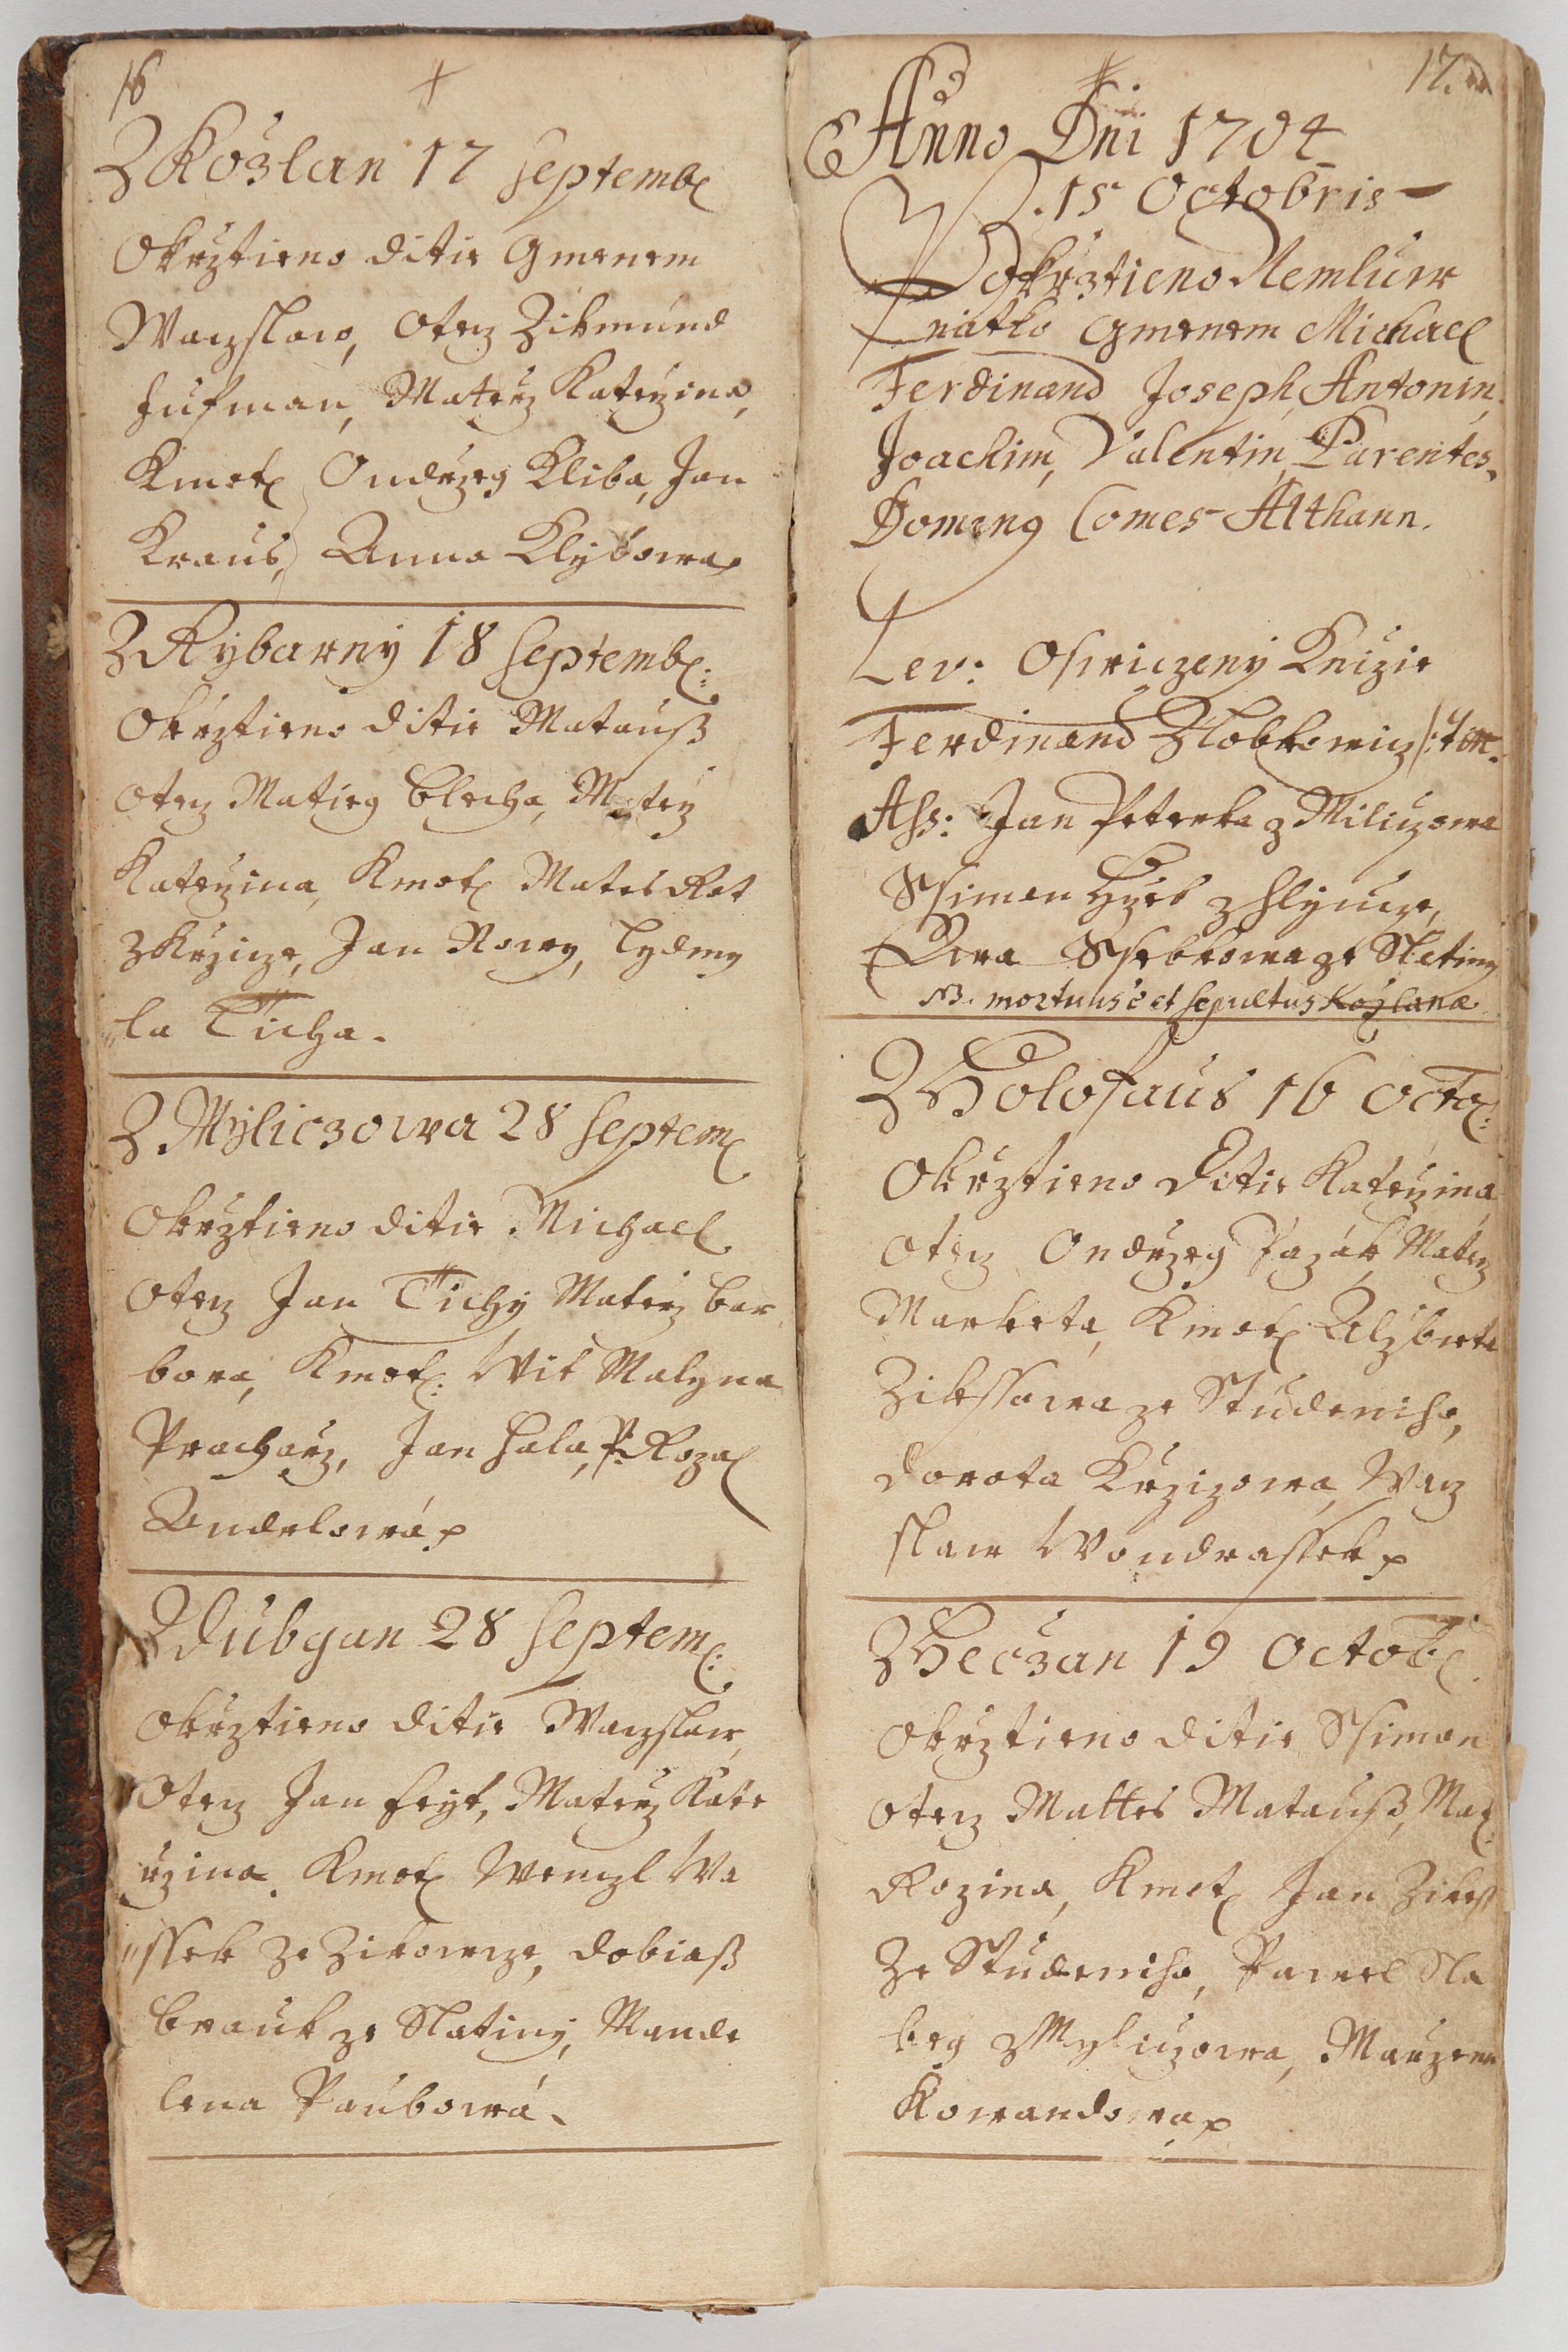 16
Z Kozlan 17 Septemb:
Okrztieno ditie Gmenem
Waczslaw, Otecz Zikmund
Hufman, Materz Katerzina,
Kmotr Ondrzeg Kliba, Jan
Kraus, Anna Klybowa
Z Rybarny 18 Septemb:
Okrztieno ditie Matauß
Otecz Matieg Blecha, Materz
Katerzina, Kmotr Mates Rot
z Krzicze, Jan Nowy, Lydmy
la Ticha.
Z Myliczowa 28 Septem:
Okrztieno ditie Michael
Otecz Jan Tichy Materz Bar
bora, Kmotr: Wit Malyna
Pracharz, Jan Hala, P. Rozal
Andelowá
Z Dubgan 28 Septem:
Okrztieno ditie Waczslaw,
Otecz Jan Freyt, Materz Kate
rzina. Kmotr Wenczl Wa
ssek ze Zikowcze, Dobiaß
Brauk ze Slatiny, Manda
lena Paubowá.
17.
Anno Dni 1704
D. 15 Octobris
Pokrztieno Nemluw
niatko Gmenem Michael
Ferdinand, Joseph, Antonin,
Joachim, Valentin, Parentes
Doming Comes Althann.
Lev: Oswiczeny Knizie
Ferdinand z Lobkowicz
Ass: Jan Peterka z Miliczowa
Ssiman Hyrb z Hlyncze,
Dora Ssebkowa ze Slatiny
NB. mortuus e et sepultus Kozlanæ
Z Holofaus 16 Octo:
Okrztieno ditie Katerzina
Otecz Ondrzeg Pazák, Materz
Marketa, Kmotr Alzbeta
Zikssowa ze Studeniho,
Dorota Krzizowa, Wacz
slaw Wondrassek
Z Heczan 19 Octob:
Okrztieno ditie Ssiman
Otecz Mattes Matauß, Mat:
Rozina, Kmotr Jan Zikeß
Ze Studeniho, Pawel Sla
beg z Myliczowa, Maurzena
Kowandowa